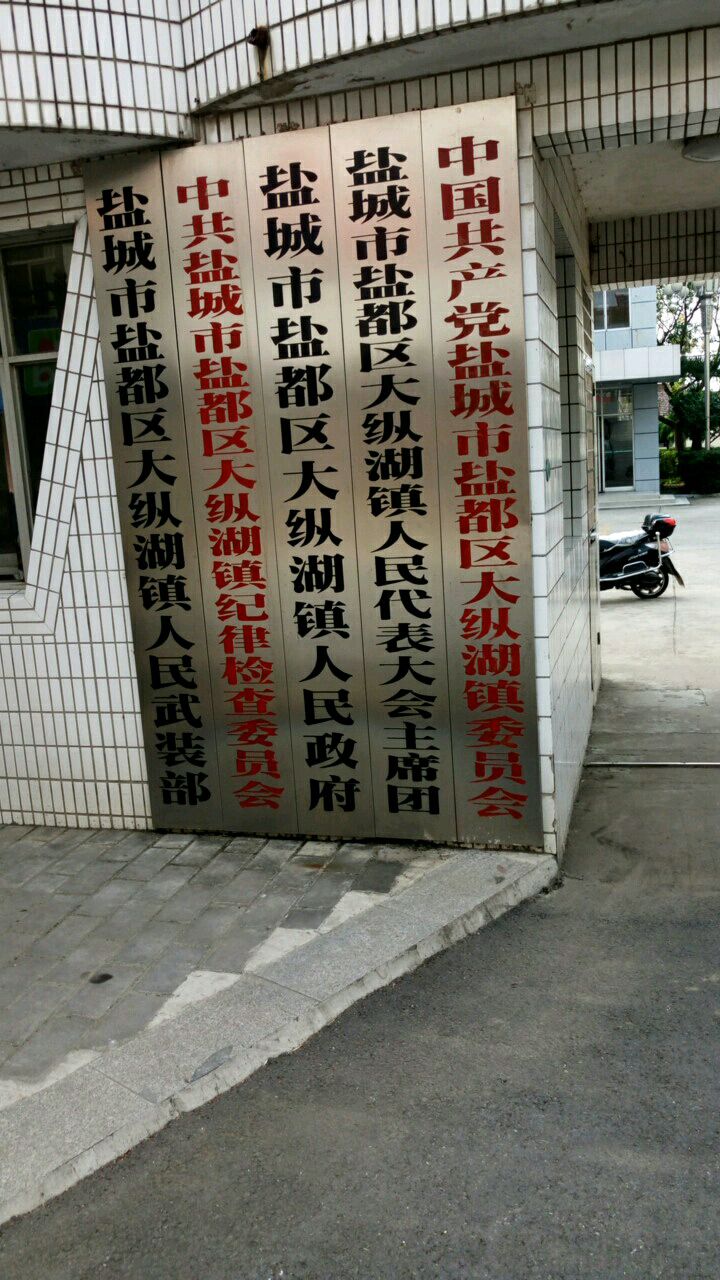 中国共产党盐城市盐都区大纵湖镇委员会
盐城市盐都区大纵湖镇人民代表大会主席团
盐城市盐都区大纵湖镇人民政府
中共盐城市盐都区大纵湖镇纪律检查委员会
盐城市盐都区大纵湖镇人民武装部